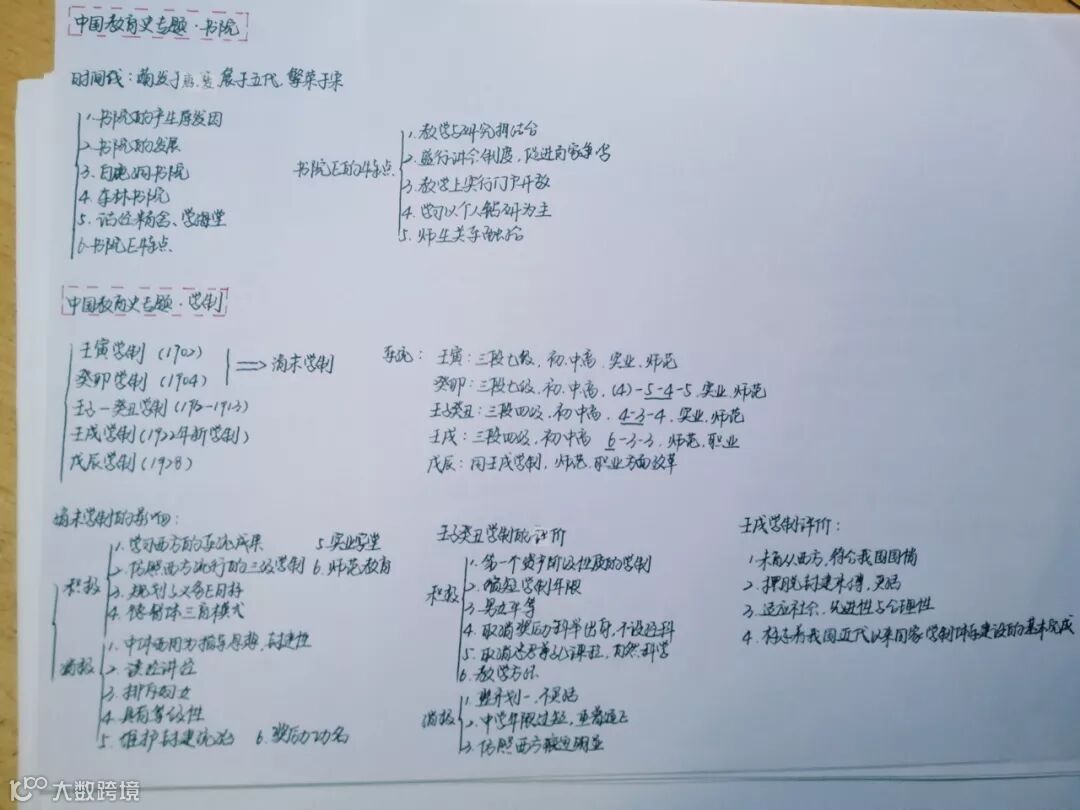 中国教育史专题·书院
时间线:萌发于唐,发展于五代,繁荣于宋
1.书院的产生原发因
2.书院的发展
3.白鹿洞书院
4.东林书院
5.诂经精舍、学海堂
6.书院E特点
书院E的特点
1.教学与研究相结合
2.盛行讲会制度,促进百家争鸣
3.教学上实行门户开放
4.学习以个人钻研为主
5.师生关系融洽
中国教育史专题·学制
壬寅学制(1902)
癸卯学制(1904)
清末学制
壬子-癸丑学制(1912-1913)
壬戌学制(1922年新学制)
戊辰学制(1928)
系统:
壬寅:三段七级,初.中高.实业.师范
癸卯:三段七级,初.中高,(4)-5-4-5,实业.师范
壬子癸丑:三段四级,初中高,4-3-4,实业,师范
壬戌:三段四级,初中高 6-3-3,师范,职业
戊辰:同壬戌学制,师范,职业方面改革
清末学制的影响:
积极
1.学习西方的系统成果
2.仿照西方流行的三级学制
3.规划了义务E目标
4.体三育模式
5.实业学堂
6.师范教育
消极
1.中体西用为指导思想,封建性
2.读经讲经
3.排斥妇女
4.具有等级性
5.维护封建统治
6.奖励功名
壬子癸丑学制的评价
积极
1.第一个资产阶级性质的学制
2.缩短学制年限
3.男女平等
4.取消奖励科举出身,不设经科
5.取消忠君尊孔课程,自然科学
6.教学方法
消极
1.整齐划一,不灵活
2.中学年限过短,重普通
3.仿照西方
壬戌学制评价:
1.来自从西方,符合我国国情
2.摆脱封建束缚,灵活
3.适应社会,先进性与合理性
4.标志着我国近代以来国家学制体系建设的基本完成
大数跨境